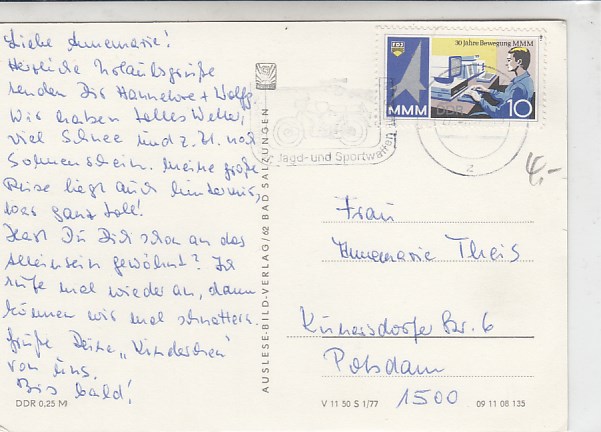 Liebe Annemarie!
Herzliche Urlaubsgrüße
senden Dir Hannelore + Wolfg.
Wir haben tolles Wetter,
viel Schnee und z. Zt. noch
Sonnenschein. Meine große
Reise liegt auch hinter mir,
war ganz toll!
Hast Du Dich schon an das
Alleinsein gewöhnt? Ich
rufe mal wieder an, dann
können wir mal schnattern.
Grüße Deine „Kinderchen"
von uns.
Bis bald!
DDR 0,25 M
AUSLESE-BILD-VERLAG/62 BAD SALZUNGEN
FDJ
30 Jahre Bewegung MMM
MMM
DDR
10
Jagd- und Sportwaffen
z
4,-
Frau
Annemarie Theis
Kunersdorfer Str. 6
Potsdam
1500
V 11 50 S 1/77
09 11 08 135